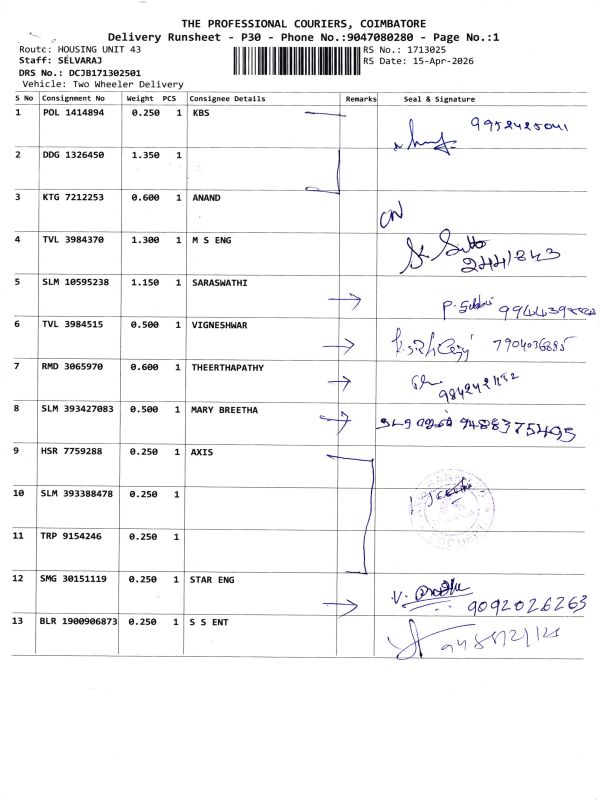 THE PROFESSIONAL COURIERS, COIMBATORE
Delivery Runsheet - P30 - Phone No.:9047080280 - Page No.:1
Route: HOUSING UNIT 43
RS No.: 1713025
Staff: SELVARAJ
RS Date: 15-Apr-2026
DRS No.: DCJB171302501
Vehicle: Two Wheeler Delivery
S No Consignment No Weight PCS Consignee Details Remarks Seal & Signature
1 POL 1414894 0.250 1 KBS 9952425041
2 DDG 1326450 1.350 1
3 KTG 7212253 0.600 1 ANAND
4 TVL 3984370 1.300 1 M S ENG 2441843
5 SLM 10595238 1.150 1 SARASWATHI
6 TVL 3984515 0.500 1 VIGNESHWAR 7904036885
7 RMD 3065970 0.600 1 THEERTHAPATHY
8 SLM 393427083 0.500 1 MARY BREETHA 9488375495
9 HSR 7759288 0.250 1 AXIS
10 SLM 393388478 0.250 1
11 TRP 9154246 0.250 1
12 SMG 30151119 0.250 1 STAR ENG 9092026263
13 BLR 1900906873 0.250 1 S S ENT